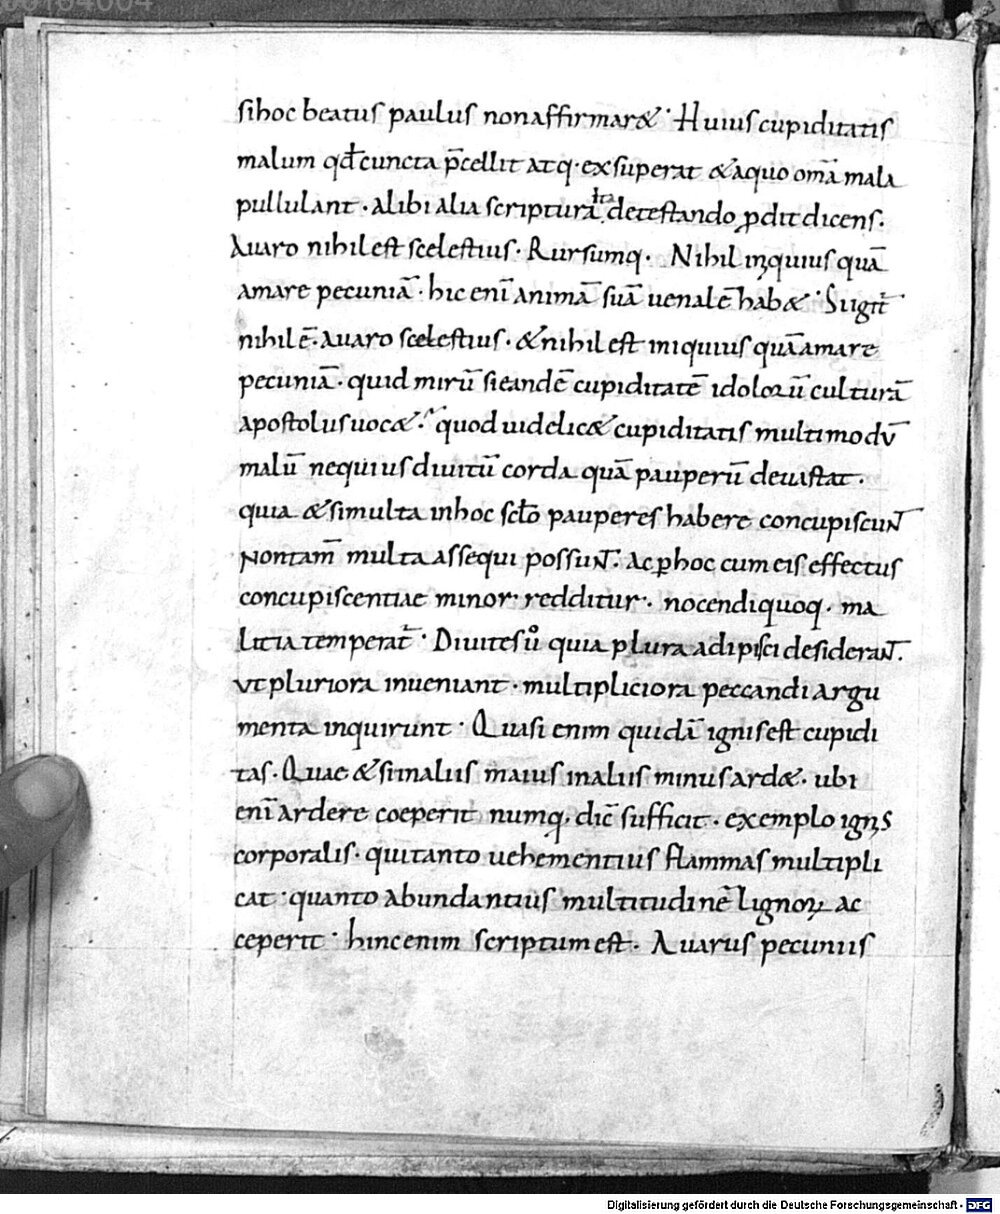 si hoc beatus paulus non affirmar&. Huius cupiditatis
malum qđ cuncta p̄cellit atq· exsuperat & a quo om̄a mala
pullulant· alibi alia scriptura ita detestando ꝓdit dicens.
Auaro nihil est scelestius. Rursumq·. Nihil iniquius quā
amare pecuniā· hic enī animā suā uenalē hab&. Si igit̄
nihil ē auaro scelestius· & nihil est iniquius quā amare
pecuniā· quid mirū si eandē cupiditatē idolorū culturā
apostolus uoc&· quod uidelic& cupiditatis multimodū
malū nequius diuitū corda quā pauperū deuastat·
quia & si multa in hoc sc̄lo pauperes habere concupiscunt
non tam̄ multa assequi possunt· ac ꝑ hoc cum eis effectus
concupiscentiae minor redditur· nocendi quoq· ma
litia temperat̄· Diuites ů quia plura adipisci desiderant.
ut pluriora inueniant· multipliciora peccandi argu
menta inquirunt· Quasi enim quidā ignis est cupidi
tas. Quae & si in aliis maius in aliis minus ard&· ubi
enī ardere coeperit numq· dic̄ sufficit· exemplo ignis
corporalis· qui tanto uehementius flammas multipli
cat· quanto abundantius multitudinē lignoꝝ ac
ceperit· hinc enim scriptum est· Auarus pecuniis
Digitalisierung gefördert durch die Deutsche Forschungsgemeinschaft - DFG